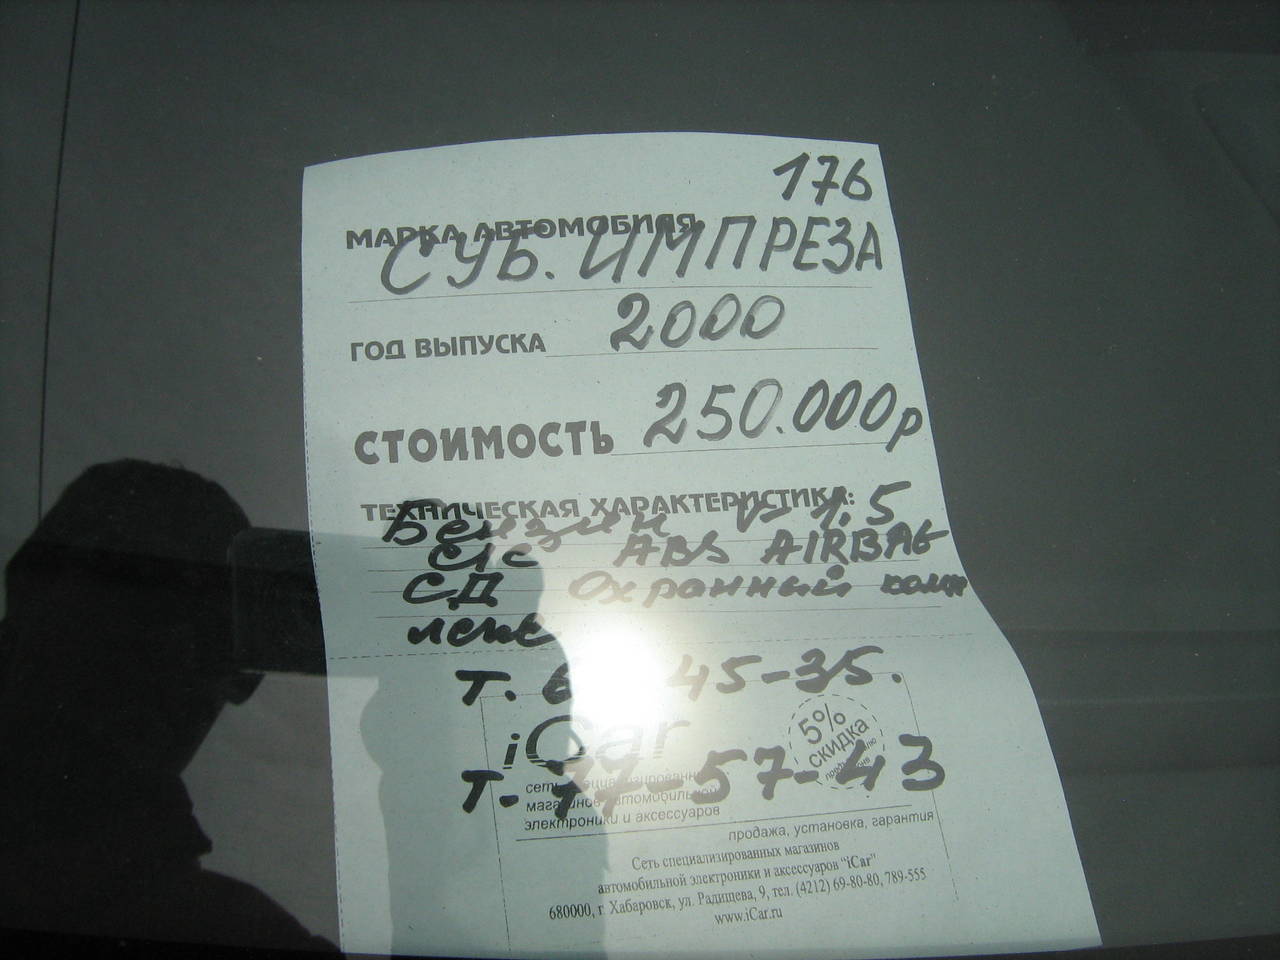 176
МАРКА АВТОМОБИЛЯ
СУБ. ИМПРЕЗА
ГОД ВЫПУСКА 2000
СТОИМОСТЬ 250.000р
ТЕХНИЧЕСКАЯ ХАРАКТЕРИСТИКА:
Бензин V-1.5
ABS AIRBAG
СД Охранный комп
лект
т. 45-35.
iCar
5% СКИДКА
т- 77-57-43
сеть специализированных
магазинов автомобильной
электроники и аксессуаров
продажа, установка, гарантия
Сеть специализированных магазинов
автомобильной электроники и аксессуаров "iCar"
680000, г. Хабаровск, ул. Радищева, 9, тел. (4212) 69-80-80, 789-555
www.iCar.ru